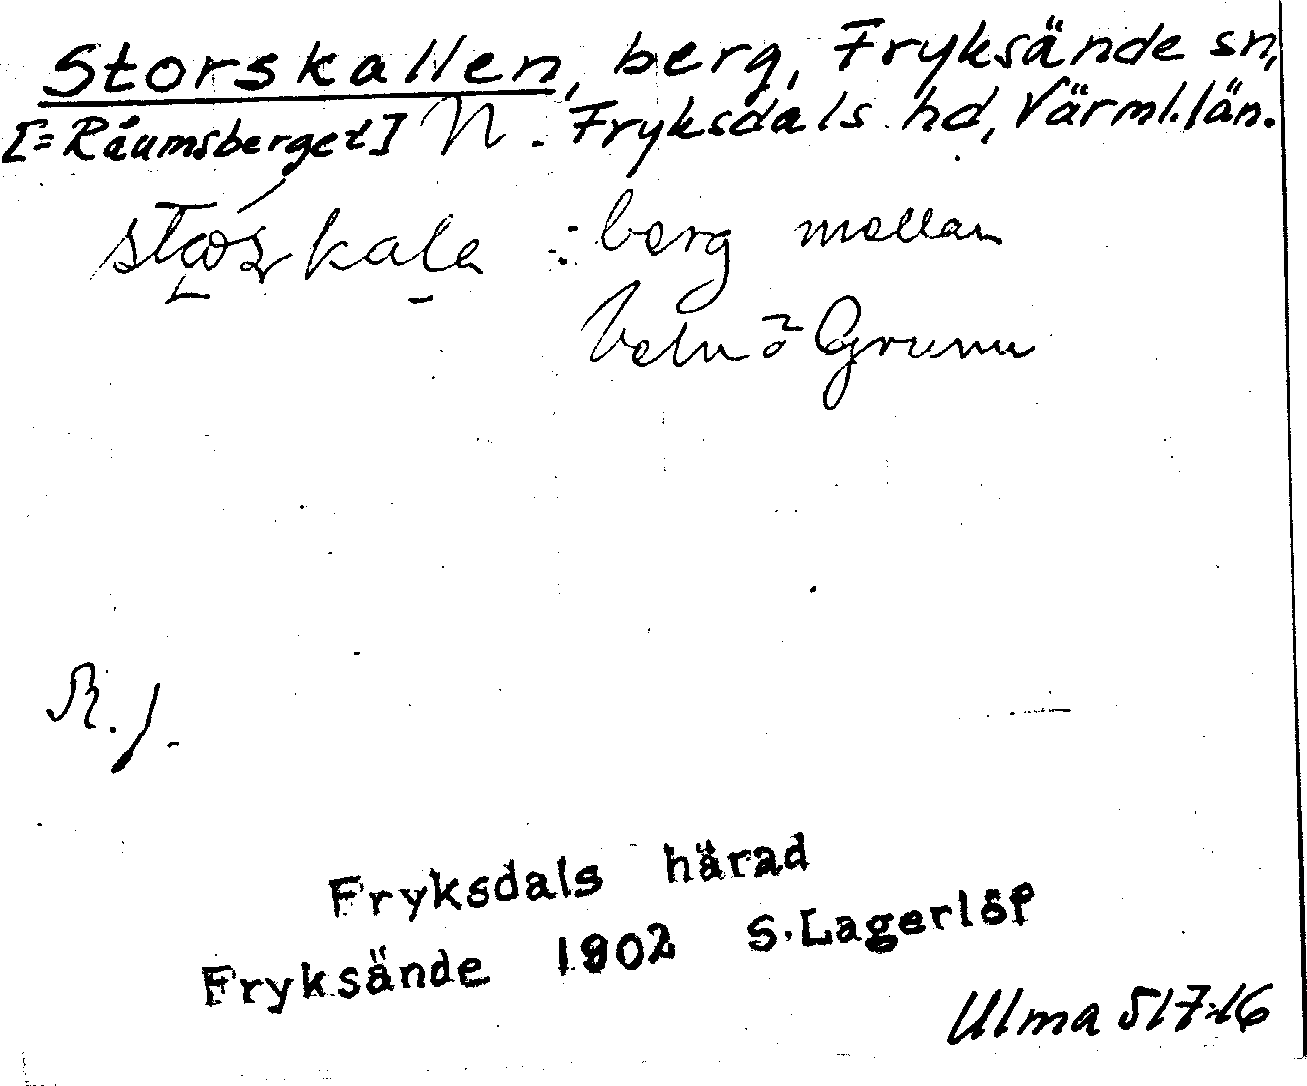 Storskallen, berg, Fryksände sn,
[=Råumsberget] N. Fryksdals hd, Värml. län.
: berg mellan
o Grunn
R. J.
Fryksdals härad
Fryksände 1902 S. Lagerlöf
Ulma 517:16